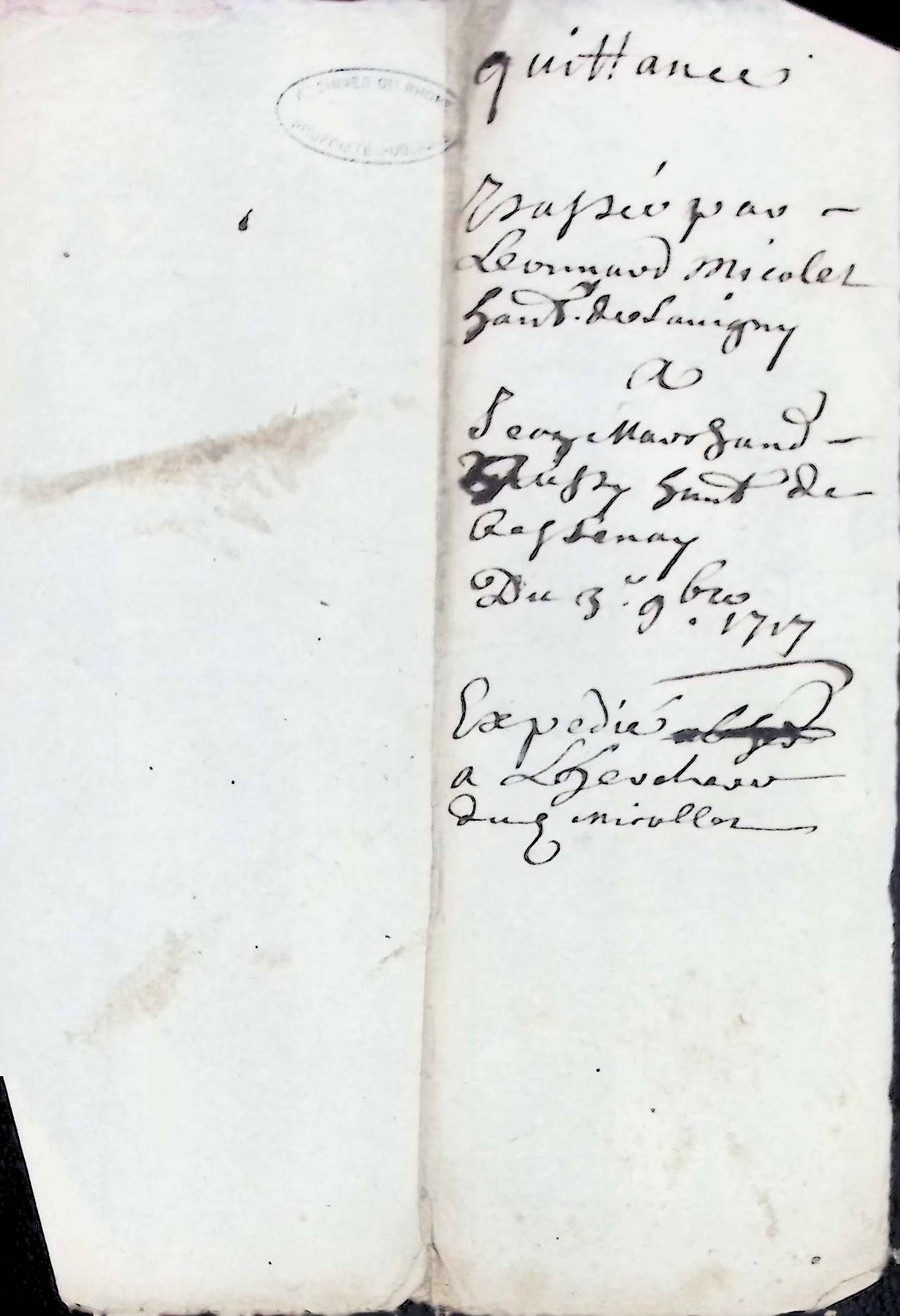 ARCHIVES DU RHONE
PROPRIETE PUBLIQUE
quittance
Passée par
Leonnard Micolet
hant. de Savigny
A
Jean Marchand
hant de
Bessenay
Du 3.e 9.bre 1717
Expedié
a
du Micollet